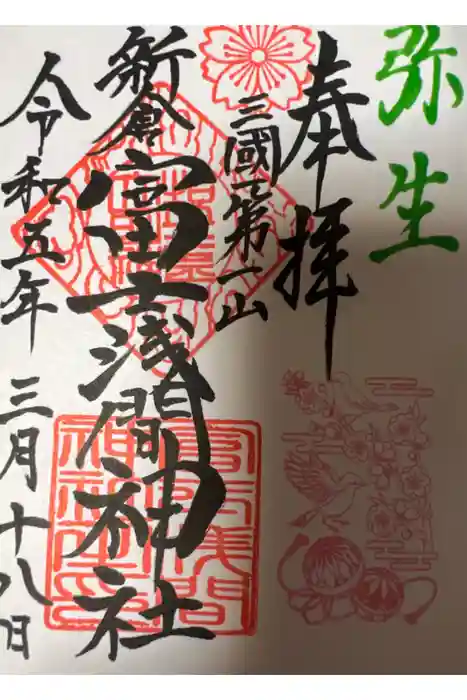 弥生
奉拝
三國第一山
新倉富士浅間神社
令和五年三月十八日